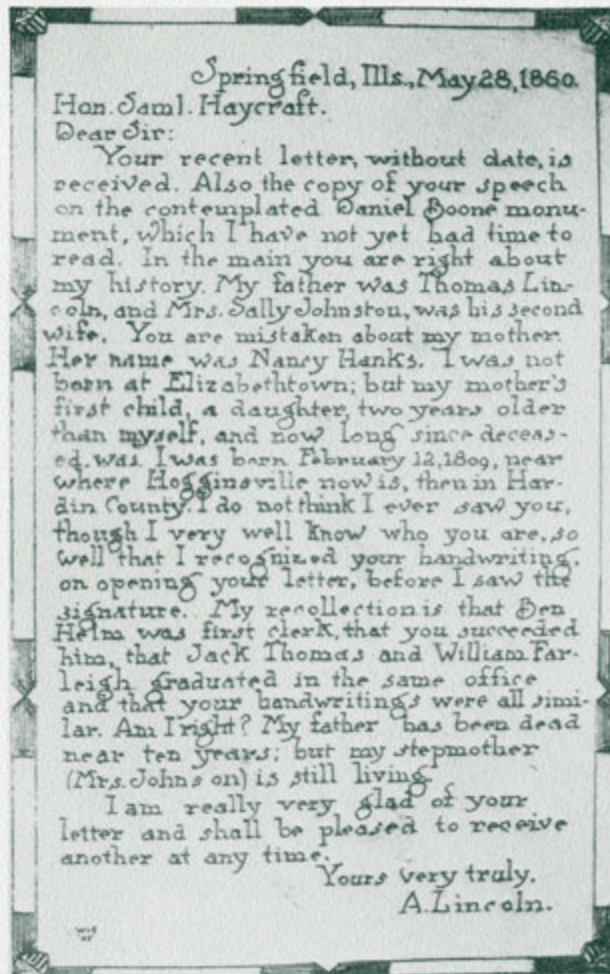 Springfield, Ills., May 28, 1860.
Hon. Saml. Haycraft.
Dear Sir:
Your recent letter, without date, is
received. Also the copy of your speech
on the contemplated Daniel Boone monu-
ment, which I have not yet had time to
read. In the main you are right about
my history. My father was Thomas Lin-
coln, and Mrs. Sally Johnston, was his second
wife. You are mistaken about my mother.
Her name was Nancy Hanks. I was not
born at Elizabethtown; but my mother's
first child, a daughter, two years older
than myself, and now long since deceas-
ed, was. I was born February 12, 1809, near
where Hogginsville now is, then in Har-
din County. I do not think I ever saw you,
though I very well know who you are, so
well that I recognized your handwriting,
on opening your letter, before I saw the
signature. My recollection is that Ben
Helm was first clerk, that you succeeded
him, that Jack Thomas and William Far-
leigh graduated in the same office
and that your handwritings were all simi-
lar. Am I right? My father has been dead
near ten years; but my stepmother
(Mrs. Johns on) is still living.
I am really very glad of your
letter and shall be pleased to receive
another at any time.
Yours very truly.
A. Lincoln.